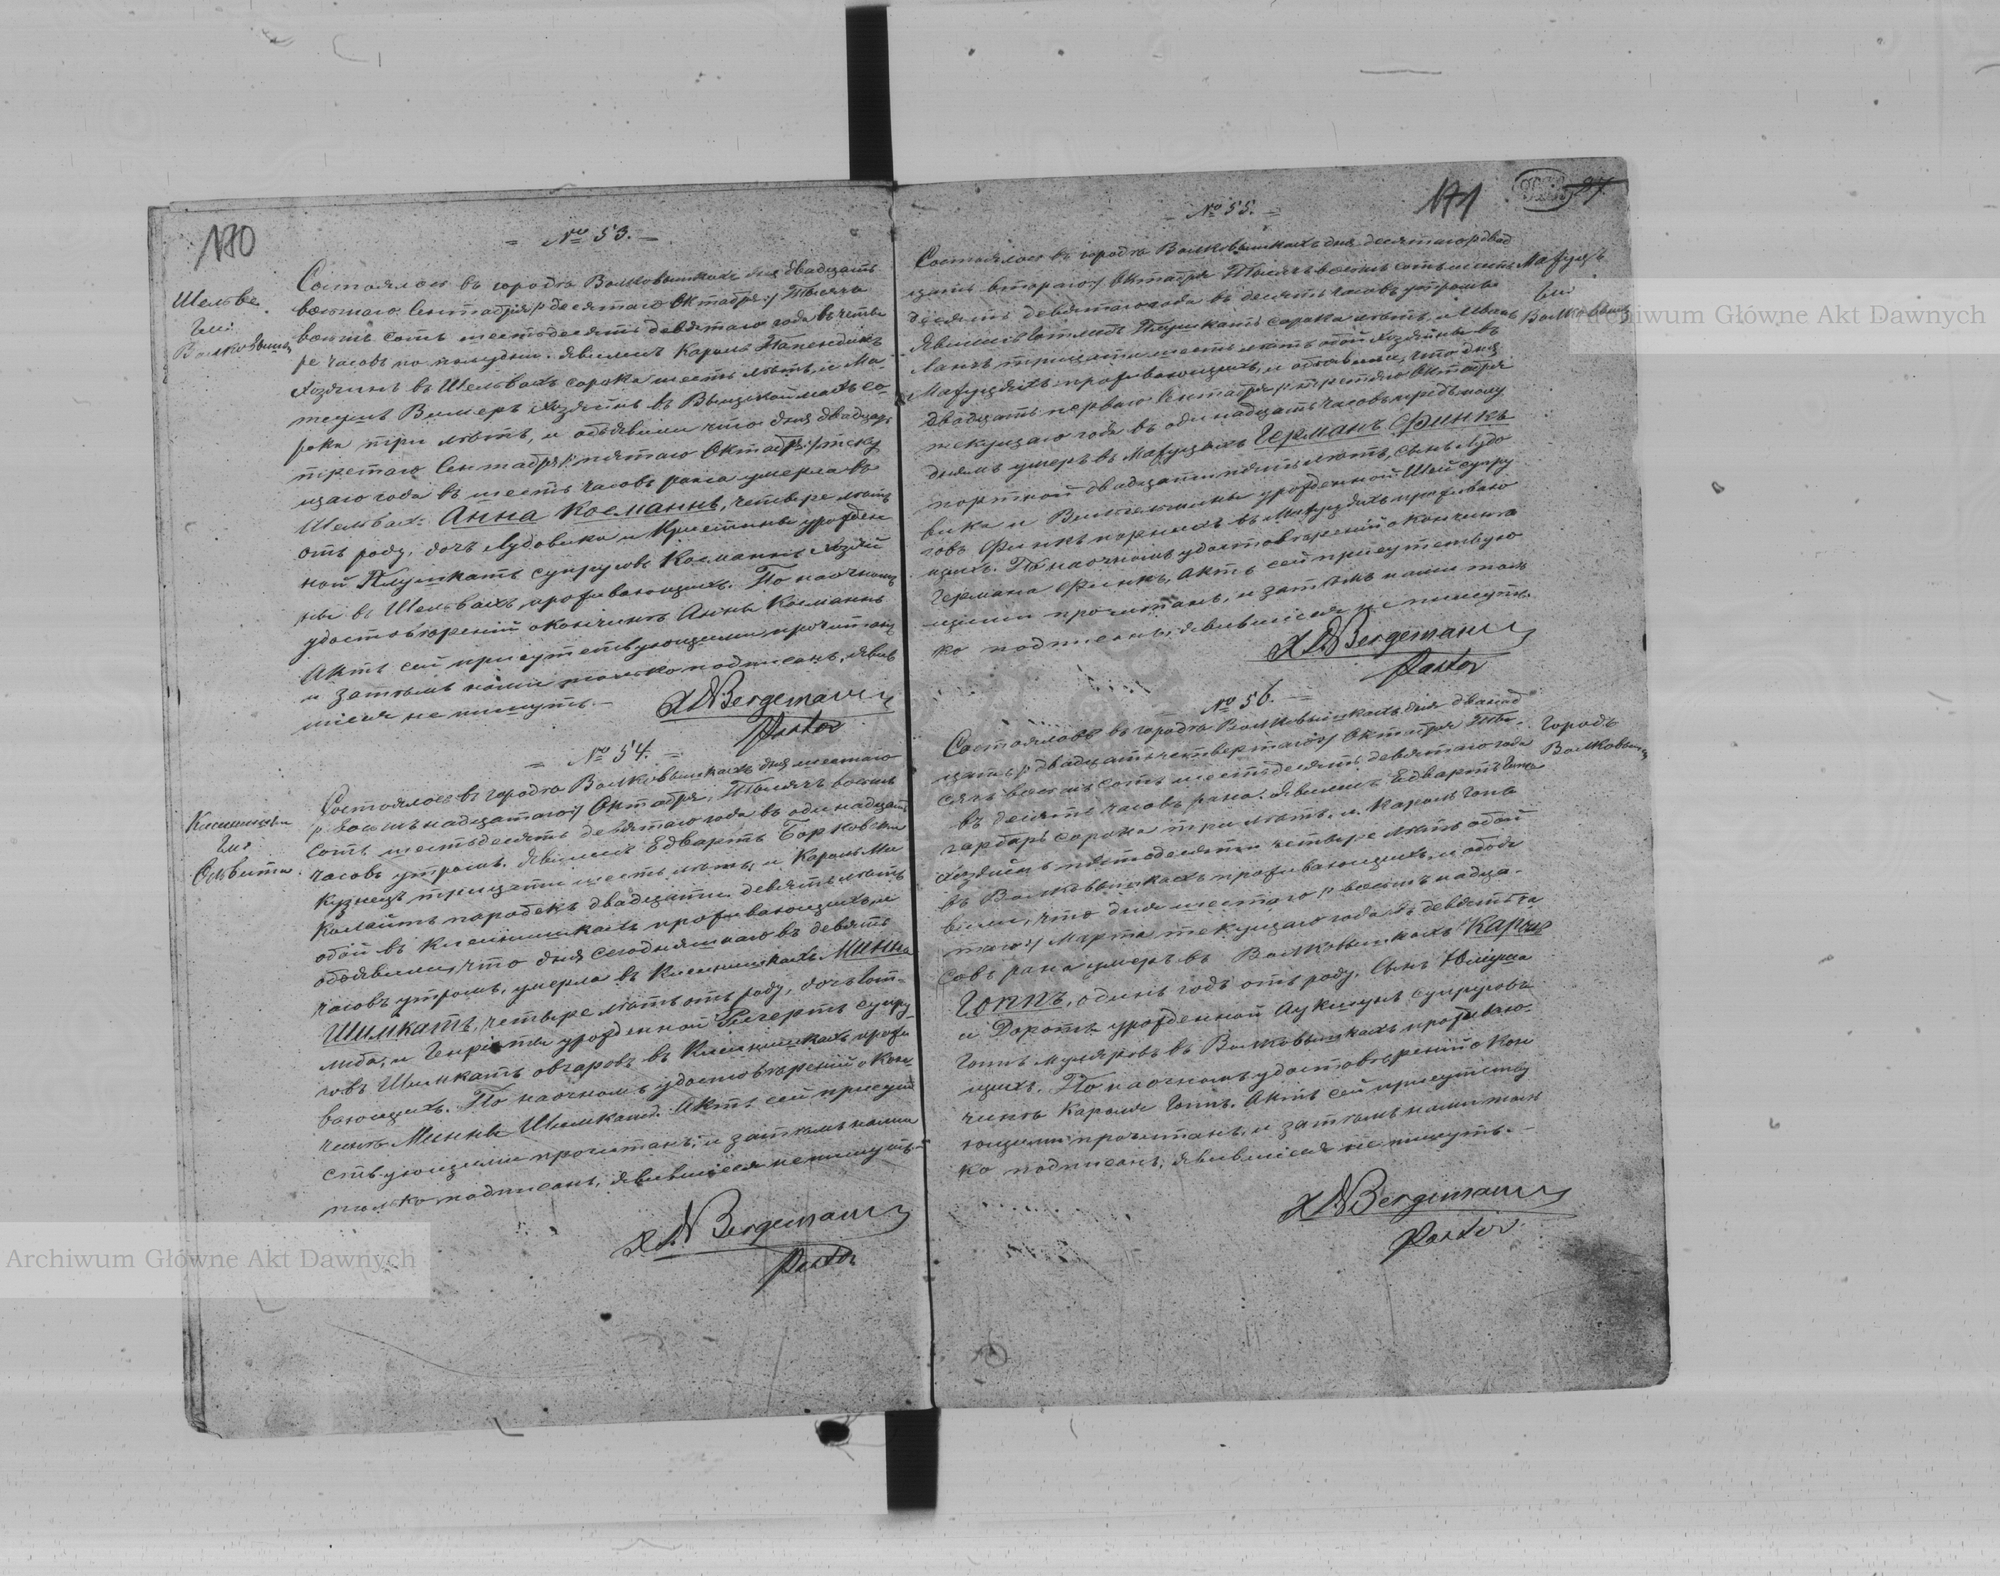 170
= № 53. =
Шельве.
Гм:
Волковышк
Состоялось въ городѣ Волковышкахъ дня двадцать
восьмаго Сентября /: десятаго Октября :/ Тысяча
восемь сотъ шестьдесятъ девятаго года въ четы
ре часовъ по полудни. Явились Кароль Папендикъ
Хозяинъ въ Шельвахъ сорока шесть лѣтъ, и Ма-
теушъ Вимеръ Хозяинъ въ со-
рока три лѣтъ, и объявили что дня двадцать
третьяго Сентября /: пятаго Октября :/ теку
щаго года въ шесть часовъ рана умерла въ
Шельвахъ Анна Косманнъ, четыре лѣтъ
отъ роду, дочь Лудовика и Кристины урожден
ной Плушкатъ супруговъ Косманнъ Хозяи
новъ въ Шельвахъ проживающихъ. По наочномъ
удостовѣреніи о кончинѣ Анны Косманнъ
Актъ сей присутствующими прочитанъ,
и затѣмъ нами только подписанъ, явив
шіеся не пишутъ. —
Bergemann
Pastor
= № 54. =
Гм:
Олвита.
Состоялось въ городѣ Волковышкахъ дня шестаго
/: восьмнадцатаго :/ Октября, Тысячъ восемь
сотъ шестьдесятъ девятаго года въ одинадцать
часовъ утромъ. Явились Едвартъ Борковски
кузнецъ тридцати шесть лѣтъ, и Кароль Ми
колайтъ паробекъ двадцати девять лѣтъ
обои въ проживающихъ, и
объявили, что дня сегодняшнаго въ девять
часовъ утромъ, умерла въ Минна
Шимкатъ, четыре лѣтъ отъ роду, дочь Гот-
либа, и Генріеты урожденной супру
говъ Шимкатъ овчаровъ въ прожи
вающихъ. По наочномъ удостовѣреніи о кон-
чинѣ Минны Шимкатъ. Актъ сей присут
ствующими прочитанъ, и затѣмъ нами
только подписанъ, явившіеся не пишутъ.
Bergemann
Pastor
171
27.
= № 55. =
Гм:
Волковышк
Состоялось въ городѣ Волковышкахъ дня десятаго /: двад
цать втораго :/ Октября Тысячъ восемь сотъ шесть
десятъ девятаго года въ десять часовъ утромъ
Явились Готлибъ Плушкатъ сорока лѣтъ, и Иванъ
Лангъ тридцати шесть лѣтъ обои Хозяинами въ
проживающихъ, и объявили, что дня
двадцать перваго Сентября /: третьяго Октября :/
текущаго года въ одинадцать часовъ предъ полу
днемъ умеръ въ Германъ Финкъ
портной двадцати пять лѣтъ, сынъ Лудо
вика и Вильгельмины урожденной Шей супру
говъ Финкъ въ проживаю
щихъ. По наочномъ удостовѣреніи о кончинѣ
Германа Финкъ, Актъ сей присутствую
щими прочитанъ, и затѣмъ нами толь
ко подписанъ, явившіеся не пишутъ.
Bergemann
Pastor
= № 56. =
Городъ
Волковышк
Состоялось въ городѣ Волковышкахъ дня двѣнад
цать /: двадцати четвертаго :/ Октября Тыс-
сячъ восемь сотъ шестьдесятъ девятаго года
въ десять часовъ рана. Явились Едвартъ
гарбаръ сорока три лѣтъ, и Кароль Гопъ
Хозяинъ пятьдесятъ четыре лѣтъ обои
въ Волковышкахъ проживающихъ, и объя
вили, что дня шестаго /: восемьнадца-
таго :/ Марта текущаго года въ девять ча
совъ рана умеръ въ Волковышкахъ Кароль
Гоппъ, одинъ годъ отъ роду, сынъ Юліуша
и Дороты урожденной супруговъ
Гопъ муляровъ въ Волковышкахъ проживаю-
щихъ. По наочномъ удостовѣреніи о кон
чинѣ Кароля Гопъ. Актъ сей присутству
ющими прочитанъ, и затѣмъ нами толь
ко подписанъ, явившіеся не пишутъ. —
Bergemann
Pastor
Archiwum Główne Akt Dawnych
Archiwum Główne Akt Dawnych